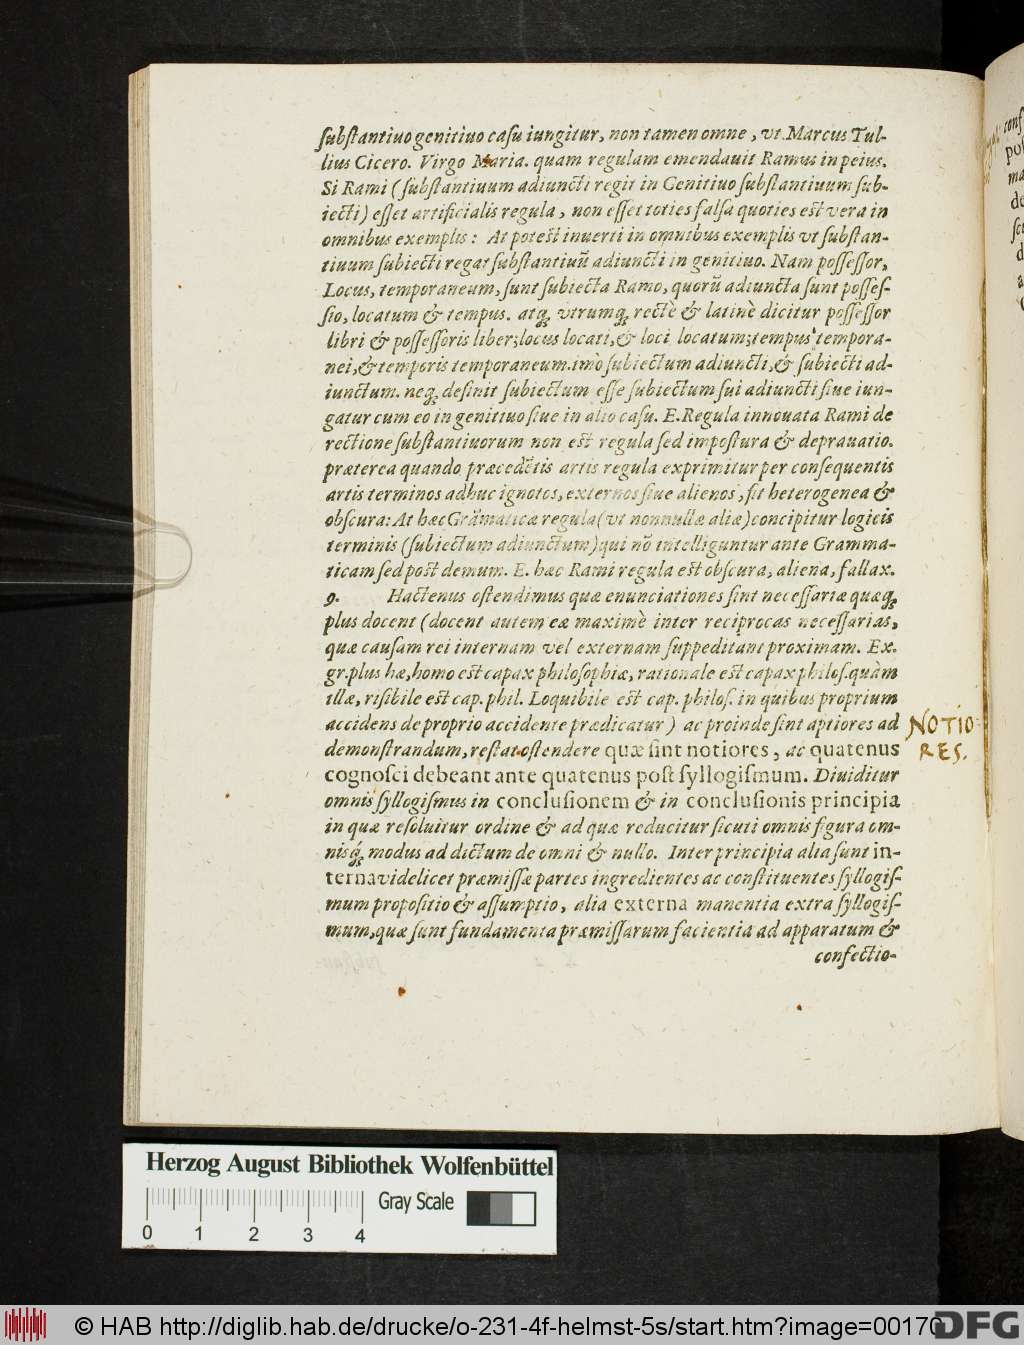 ſubſtantiuo genitiuo caſu iungitur, non tamen omne, vt Marcus Tul-
lius Cicero. Virgo Maria. quam regulam emendauit Ramus in peius.
Si Rami (ſubſtantiuum adiuncti regit in Genitiuo ſubſtantiuum ſub-
iecti) eſſet artificialis regula, non eſſet toties falſa quoties est vera in
omnibus exemplis: At potest inuerti in omnibus exemplis vt ſubſtan-
tiuum ſubiecti regat ſubſtantiuũ adiuncti in genitiuo. Nam poſſeſſor,
Locus, temporaneum, ſunt ſubiecta Ramo, quorũ adiuncta ſunt poſſeſ-
ſio, locatum & tempus. atq; vtrumq; rectè & latinè dicitur poſſeſſor
libri & poſſeſſoris liber; locus locati, & loci locatum; tempus tempora-
nei, & temporis temporaneum. imò ſubiectum adiuncti, & ſubiecti ad-
iunctum. neq; deſinit ſubiectum eſſe ſubiectum ſui adiuncti ſiue iun-
gatur cum eo in genitiuo ſiue in alio caſu. E. Regula innouata Rami de
rectione ſubſtantiuorum non est regula ſed impoſtura & deprauatio.
præterea quando præcedẽtis artis regula exprimitur per conſequentis
artis terminos adhuc ignotos, externos ſiue alienos, fit heterogenea &
obſcura: At hæc Grãmaticæ regula (vt nonnullæ aliæ) concipitur logicis
terminis (ſubiectum adiunctum) qui nõ intelliguntur ante Gramma-
ticam ſed post demum. E. hæc Rami regula est obſcura, aliena, fallax.
9. Hactenus oſtendimus quæ enunciationes ſint neceſſariæ quæq;
plus docent (docent autem eæ maximè inter reciprocas neceſſarias,
quæ cauſam rei internam vel externam ſuppeditant proximam. Ex.
gr. plus hæ, homo est capax philoſophiæ, rationale est capax philoſ. quàm
illæ, riſibile est cap. phil. Loquibile est cap. philoſ. in quibus proprium
accidens de proprio accidente prædicatur) ac proinde ſint aptiores ad
demonſtrandum, reſtat oſtendere quæ ſint notiores, ac quatenus
cognoſci debeant ante quatenus poſt ſyllogiſmum. Diuiditur
omnis ſyllogiſmus in concluſionem & in concluſionis principia
in quæ reſoluitur ordine & ad quæ reducitur ſicuti omnis figura om-
nisq́; modus ad dictum de omni & nullo. Inter principia alia ſunt in-
terna videlicet præmiſſæ partes ingredientes ac conſtituentes ſyllogiſ-
mum propoſitio & aſſumptio, alia externa manentia extra ſyllogiſ-
mum, quæ ſunt fundamenta præmiſſarum facientia ad apparatum &
confectio-
NOTIO-
RES.
Herzog August Bibliothek Wolfenbüttel
Gray Scale
0 1 2 3 4
© HAB http://diglib.hab.de/drucke/o-231-4f-helmst-5s/start.htm?image=00170
DFG